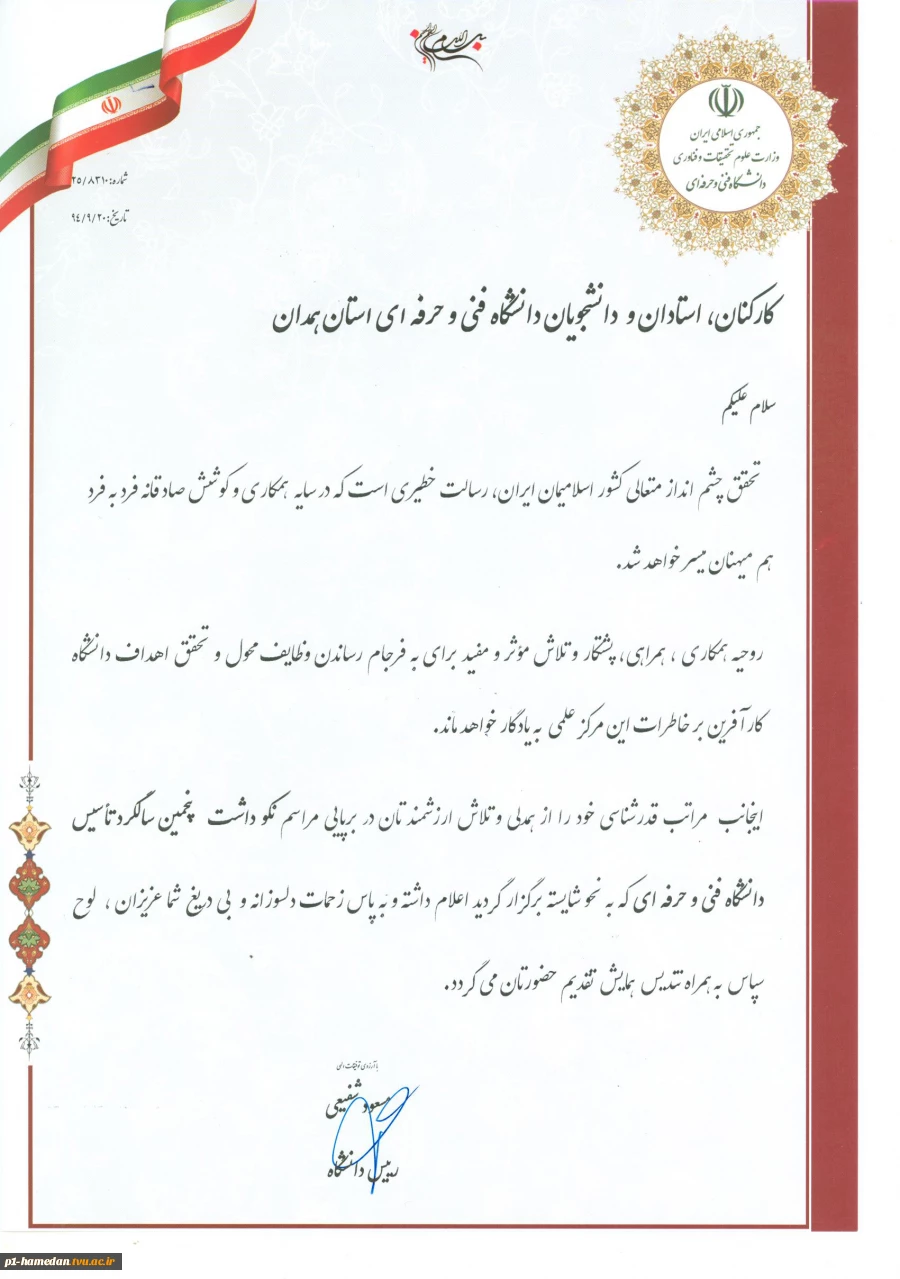 بسم الله الرحمن الرحیم
جمهوری اسلامی ایران
وزارت علوم تحقیقات و فناوری
دانشگاه فنی و حرفه‌ای
شماره: ۲۵/۸۳۱۰
تاریخ: ۹۴/۹/۲۰
کارکنان، استادان و دانشجویان دانشگاه فنی و حرفه ای استان همدان
سلام علیکم
تحقق چشم انداز متعالی کشور اسلامیمان ایران، رسالت خطیری است که در سایه همکاری و کوشش صادقانه فرد به فرد
هم میهنان میسر خواهد شد.
روحیه همکاری ، همراهی، پشتکار و تلاش مؤثر و مفید برای به فرجام رساندن وظایف محول و تحقق اهداف دانشگاه
کارآفرین بر خاطرات این مرکز علمی به یادگار خواهد ماند.
اینجانب مراتب قدرشناسی خود را از همدلی و تلاش ارزشمندتان در برپایی مراسم نکو داشت پنجمین سالگرد تأسیس
دانشگاه فنی و حرفه ای که به نحو شایسته برگزار گردید اعلام داشته و به پاس زحمات دلسوزانه و بی دریغ شما عزیزان ، لوح
سپاس به همراه تندیس همایش تقدیم حضورتان می گردد.
با آرزوی توفیقات الهی
مسعود شفیعی
رییس دانشگاه
p1-hamedan.tvu.ac.ir